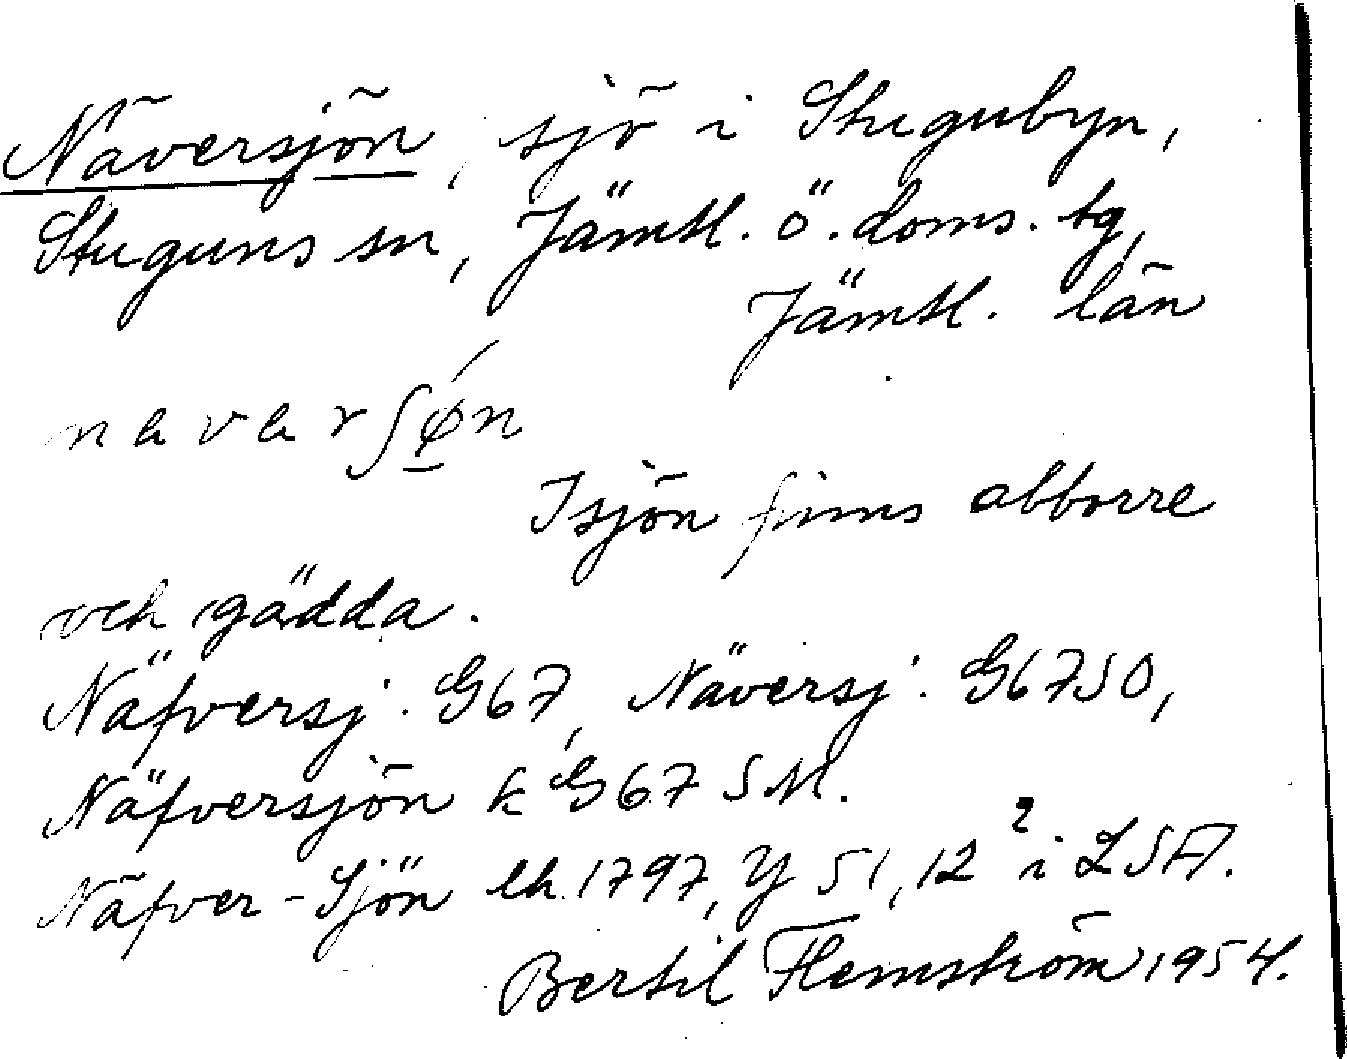 Näversjön, sjö i Stugubyn,
Stuguns sn, Jämtl. ö. doms. tg,
Jämtl. län
navarʃǿn
I sjön finns abborre
och gädda.
Näfversj. G67, Näversj. G67SO,
Näfversjön k G67 SM.
Näfver-Sjön lh. 1797, Y 51, 12² i LSA.
Bertil Flemström 1954.